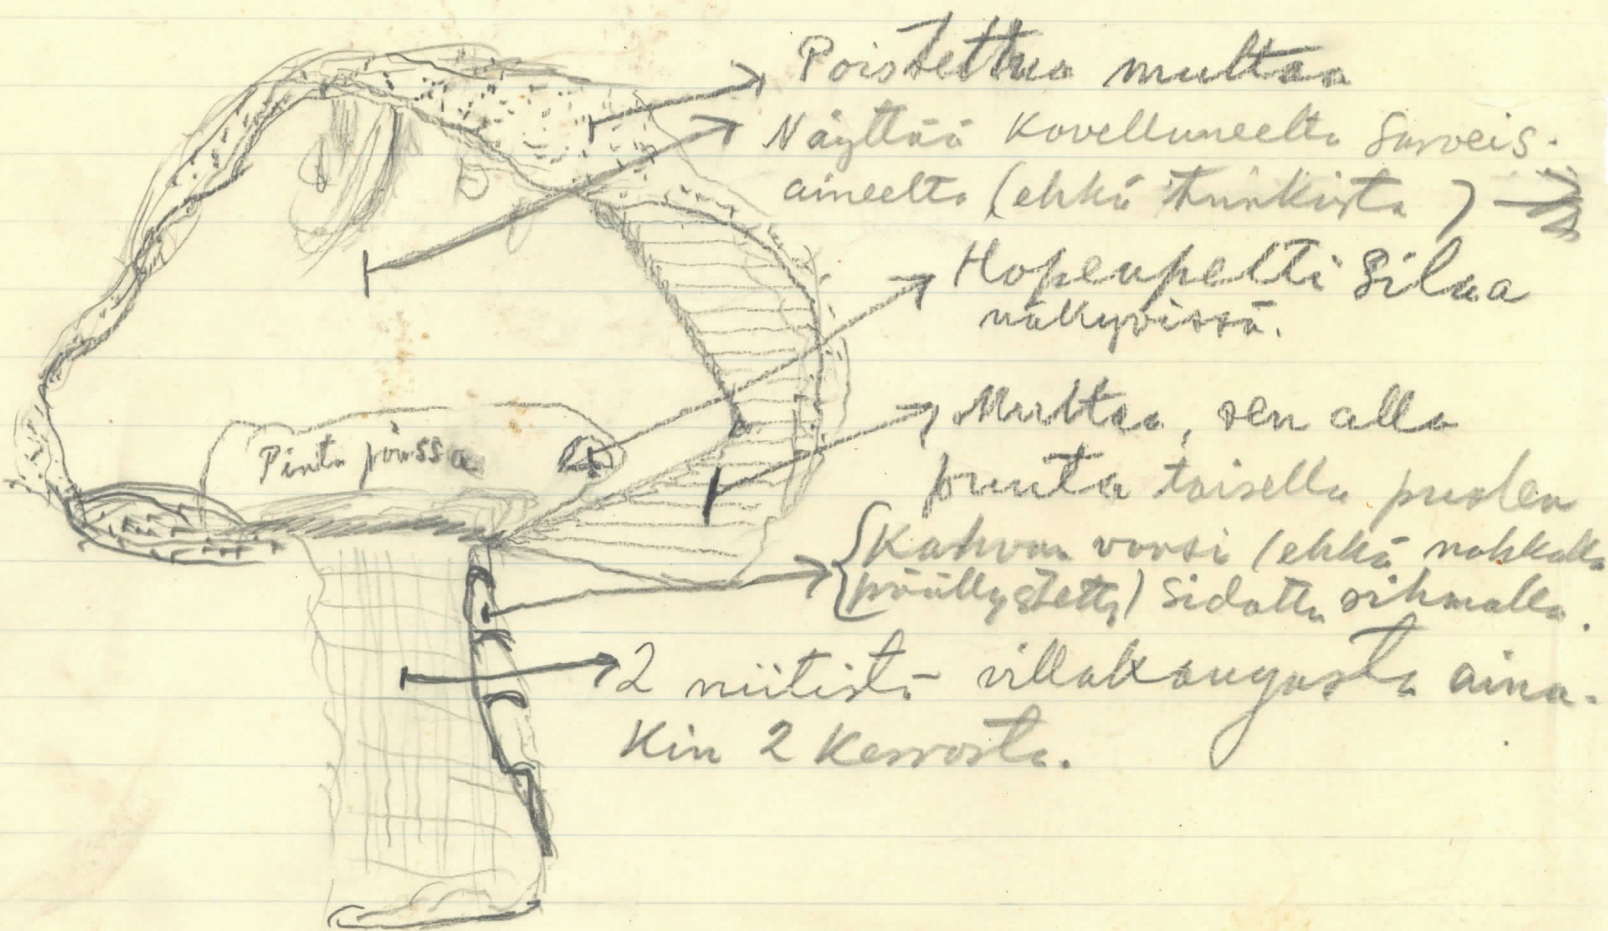 Poistettua multaa
Näyttää Kovettuneelta Sarveis-
aineelta (ehkä turkista)
Hopeapelti Silaa
näkyvissä.
Pinta päässä
Multaa, sen alla
puuta toisella puolen
Kahvan varsi (ehkä nahkalla
päällystetty) Sidottu rihmalla.
2 niitistä villakangasta aina-
Kin 2 Kerrosta.